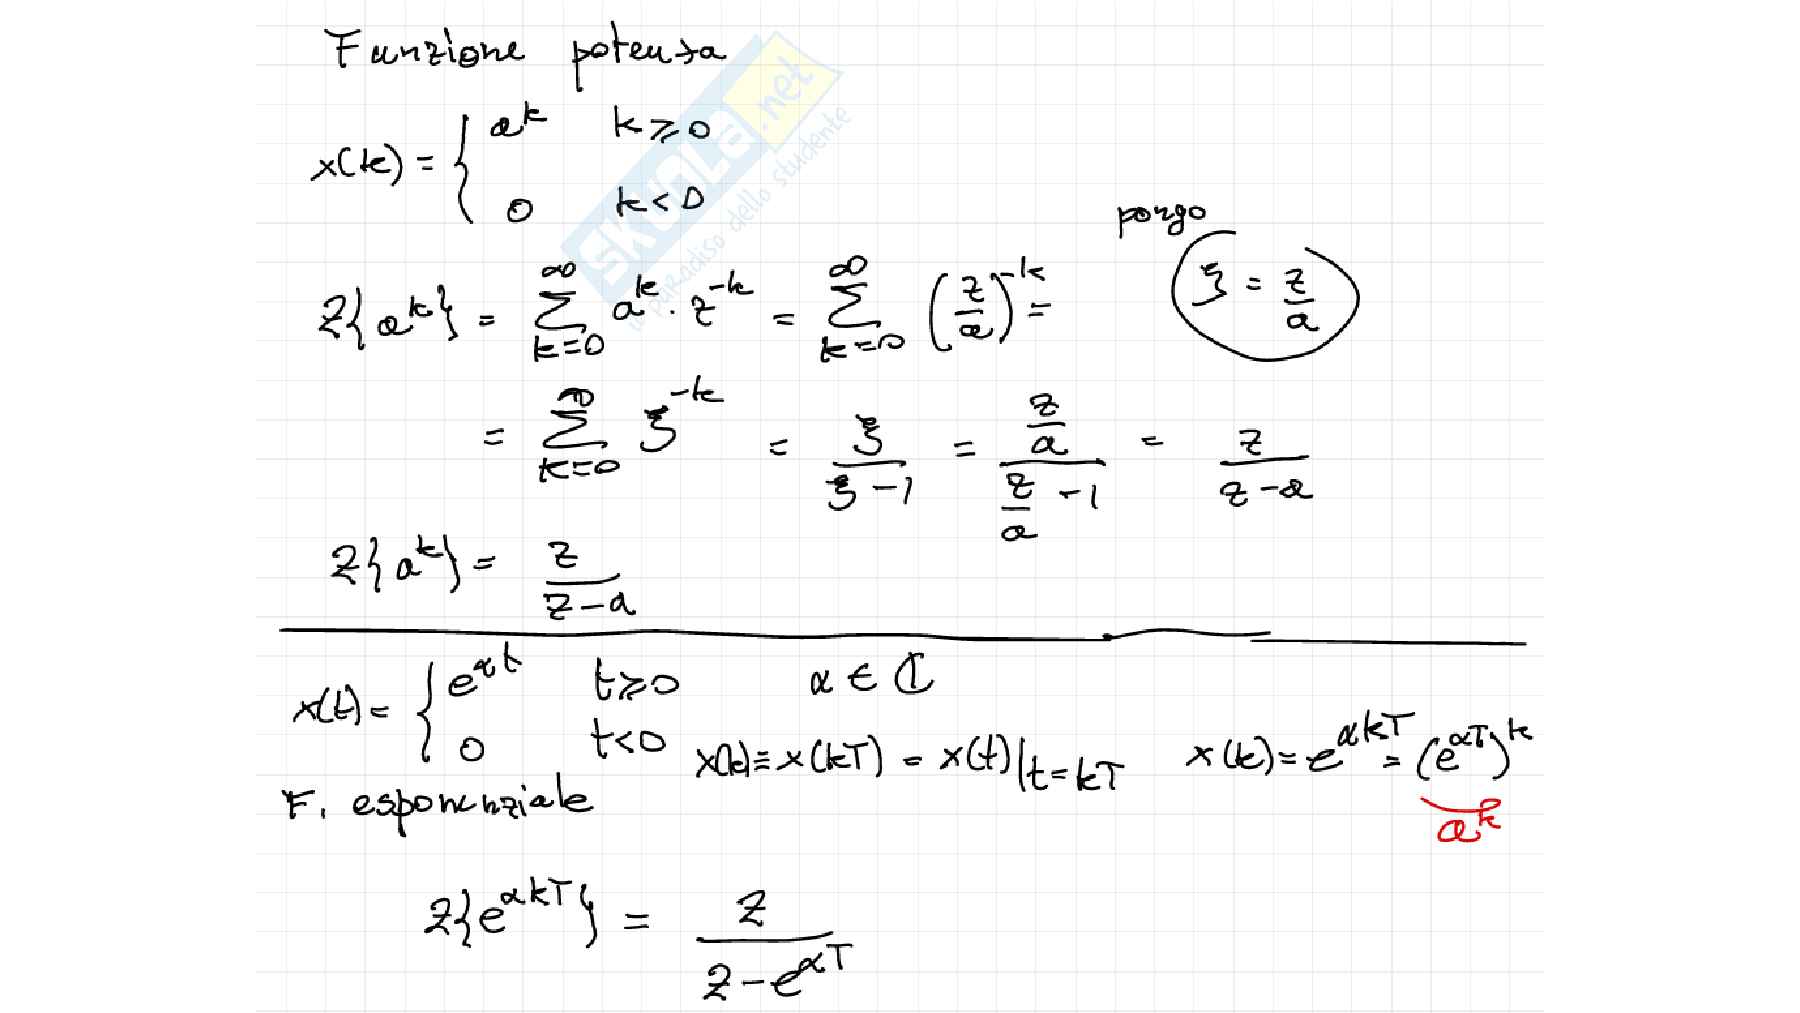 Funzione potenza
x(k) = { a^k   k ≥ 0
0   k < 0
pongo
Z{a^k} = ∑_{k=0}^{∞} a^k · z^{-k} = ∑_{k=0}^{∞} (z/a)^{-k} =   ξ = z/a
= ∑_{k=0}^{∞} ξ^{-k} = ξ/(ξ-1) = (z/a)/(z/a - 1) = z/(z-a)
Z{a^k} = z/(z-a)
x(t) = { e^{αt}   t ≥ 0   α ∈ ℂ
0   t < 0   x(k) ≡ x(kT) = x(t)|t=kT   x(k) = e^{αkT} = (e^{αT})^k
F. esponenziale   a^k
Z{e^{αkT}} = z/(z-e^{αT})
SKUOLA.net
il paradiso dello studente